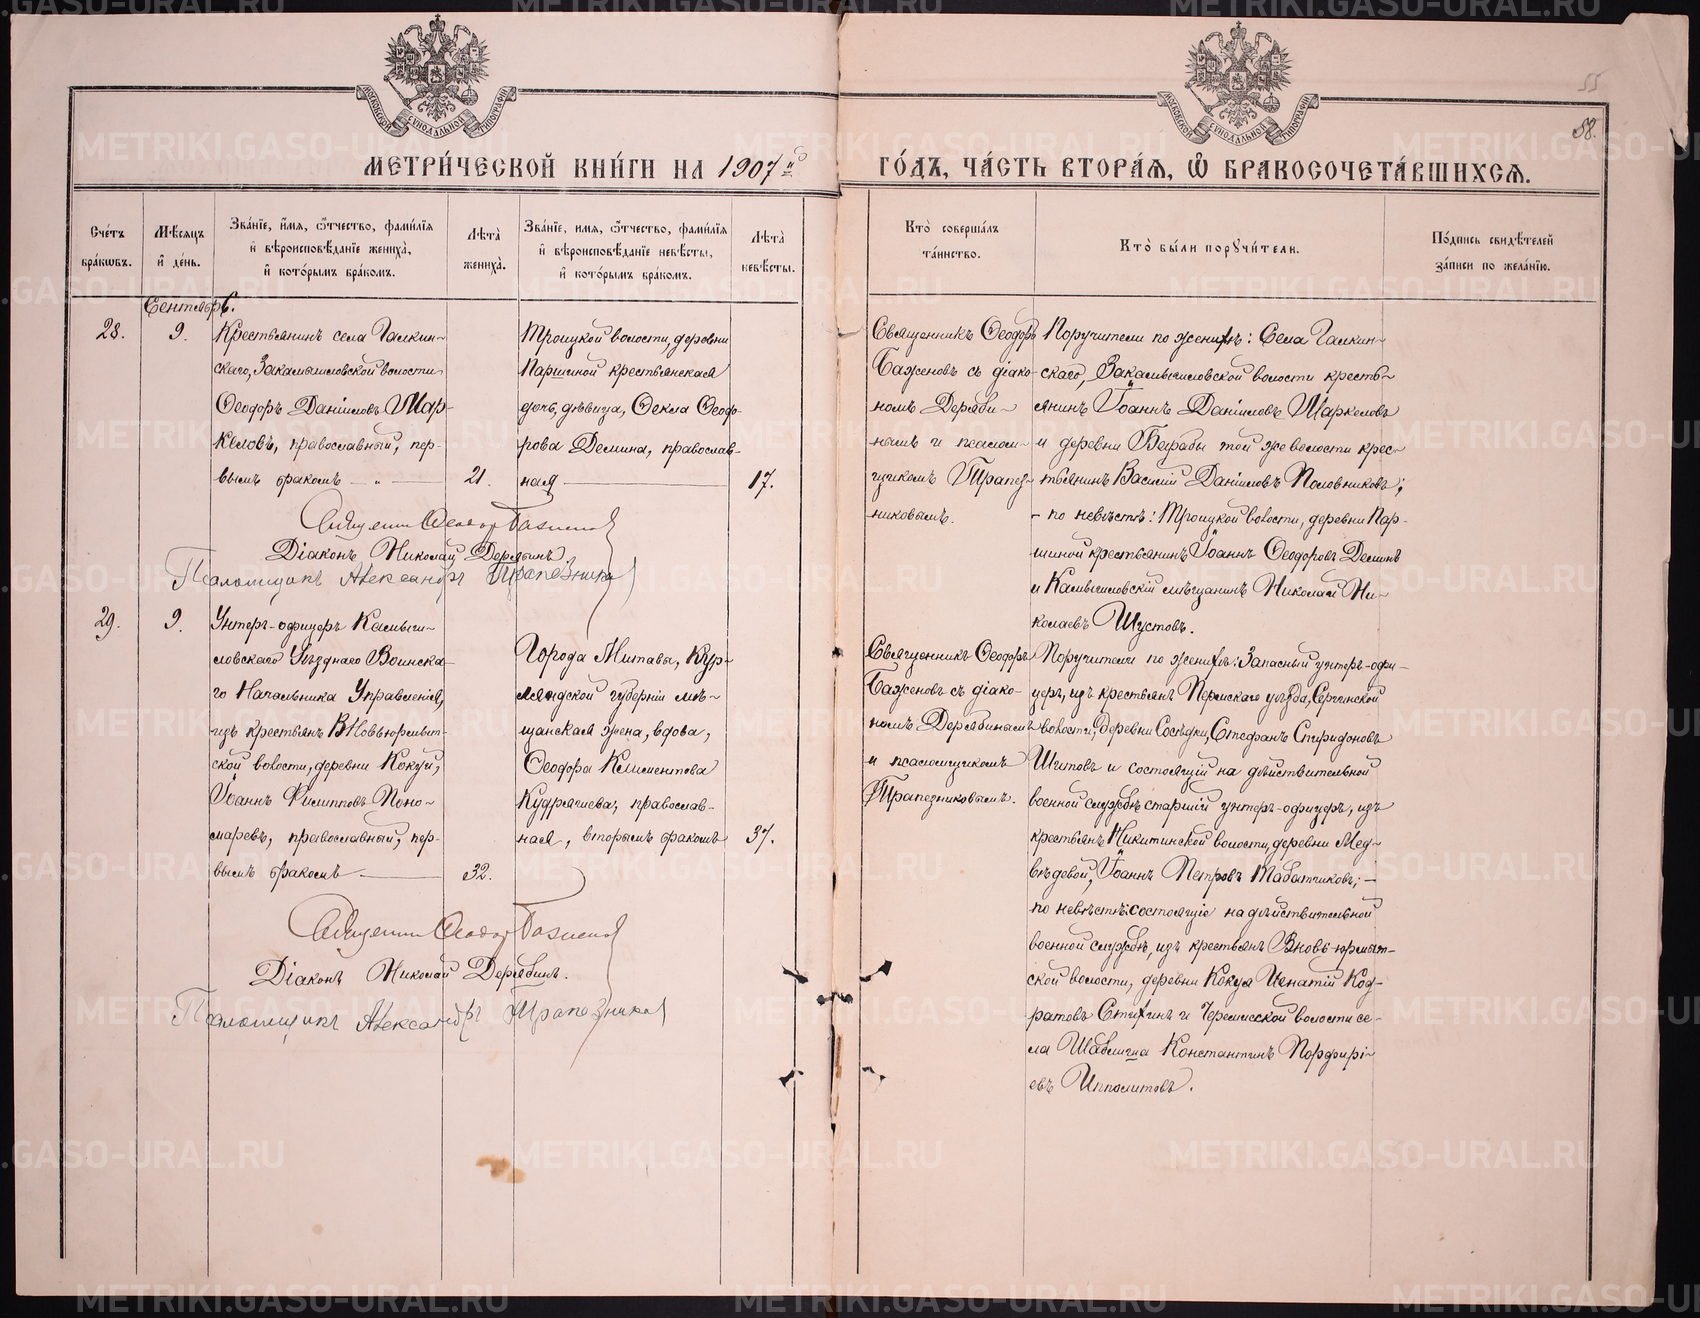 МЕТРИ́ЧЕСКОЙ КНИ́ГИ НА 1907й
ГО́ДЪ, ЧА́СТЬ ВТОРА́Я, Ѽ БРАКОСОЧЕТА́ВШИХСЯ.
55
58.
МОСКОВСКОЙ СѴНОДАЛЬНОЙ ТИПОГРАФІИ
МОСКОВСКОЙ СѴНОДАЛЬНОЙ ТИПОГРАФІИ
Сче́тъ
бра́кωвъ.
Мѣ́сяцъ
и҆ де́нь.
Зва́нїе, и҆́мя, ѻ҆́тчество, фами́лїя
и҆ вѣроисповѣ́данїе жениха̀,
и҆ кото́рымъ бра́комъ.
Лѣта̀
жениха̀.
Зва́нїе, и҆́мя, ѻ҆́тчество, фами́лїя
и҆ вѣроисповѣ́данїе невѣ́сты,
и҆ кото́рымъ бра́комъ.
Лѣта̀
невѣ́сты.
Кто̀ соверша́лъ
та́инство.
Кто̀ бы́ли порꙋчи́тели.
По́дпись свидѣ́телей
за́писи по жела́нїю.
Сентябрь.
28.
9.
Крестьянинъ села Галкин-
скаго, Закамышловской волости
Ѳеодоръ Даніиловъ Мар-
келовъ, православный, пер-
вымъ бракомъ — „ —
21.
Троицкой волости, деревни
Паршиной крестьянская
дочь, дѣвица, Ѳекла Ѳеодо-
рова Демина, православ-
ная —
17.
Священникъ Ѳеодоръ
Баженовъ съ діако-
номъ Деряби-
нымъ и псалом-
щикомъ Трапез-
никовымъ.
Поручители по женихѣ: Села Галкин-
скаго, Закамышловской волости кресть-
янинъ Іоаннъ Даніиловъ Маркеловъ
и деревни той же волости крес-
тьянинъ Василій Даніиловъ Половниковъ;
– по невѣстѣ: Троицкой волости, деревни Пар-
шиной крестьянинъ Іоаннъ Ѳеодоровъ Деминъ
и Камышловскій мѣщанинъ Николай Ни-
колаевъ Шустовъ.
Священникъ Ѳеодоръ Баженовъ
Діаконъ Николай Дерябинъ
Псаломщикъ Александръ Трапезников
29.
9.
Унтеръ-офицеръ Камыш-
ловскаго Уѣзднаго Воинска-
го Начальника Управленія,
изъ крестьянъ Вновьюрмыт-
ской волости, деревни Кокуй,
Іоаннъ Филипповъ Поно-
маревъ, православный, пер-
вымъ бракомъ —
32.
Города Митавы, Кур-
ляндской губерніи мѣ-
щанская жена, вдова,
Ѳеодора Климентова
Кудряшева, православ-
ная, вторымъ бракомъ
37.
Священникъ Ѳеодоръ
Баженовъ съ діако-
номъ Дерябинымъ
и псаломщикомъ
Трапезниковымъ.
Поручители по женихѣ: Запасный унтеръ-офи-
церъ, изъ крестьянъ Пермскаго уѣзда, Сергинской
волости, деревни Сосѣдки, Стефанъ Спиридоновъ
Шитовъ и состоящій на дѣйствительной
военной службѣ старшій унтеръ-офицеръ, изъ
крестьянъ Никитинской волости, деревни Мед-
вѣдевой, Іоаннъ Петровъ Табатчиковъ; –
по невѣстѣ: состоящіе на дѣйствительной
военной службѣ, изъ крестьянъ Вновь-юрмыт-
ской волости, деревни Кокуя Игнатій Код-
ратовъ и Черемисской волости се-
ла Шаблиша Константинъ Порфирі-
евъ Ипполитовъ.
Священникъ Ѳеодоръ Баженовъ
Діаконъ Николай Дерябинъ.
Псаломщикъ Александръ Трапезников
METRIKI.GASO-URAL.RU